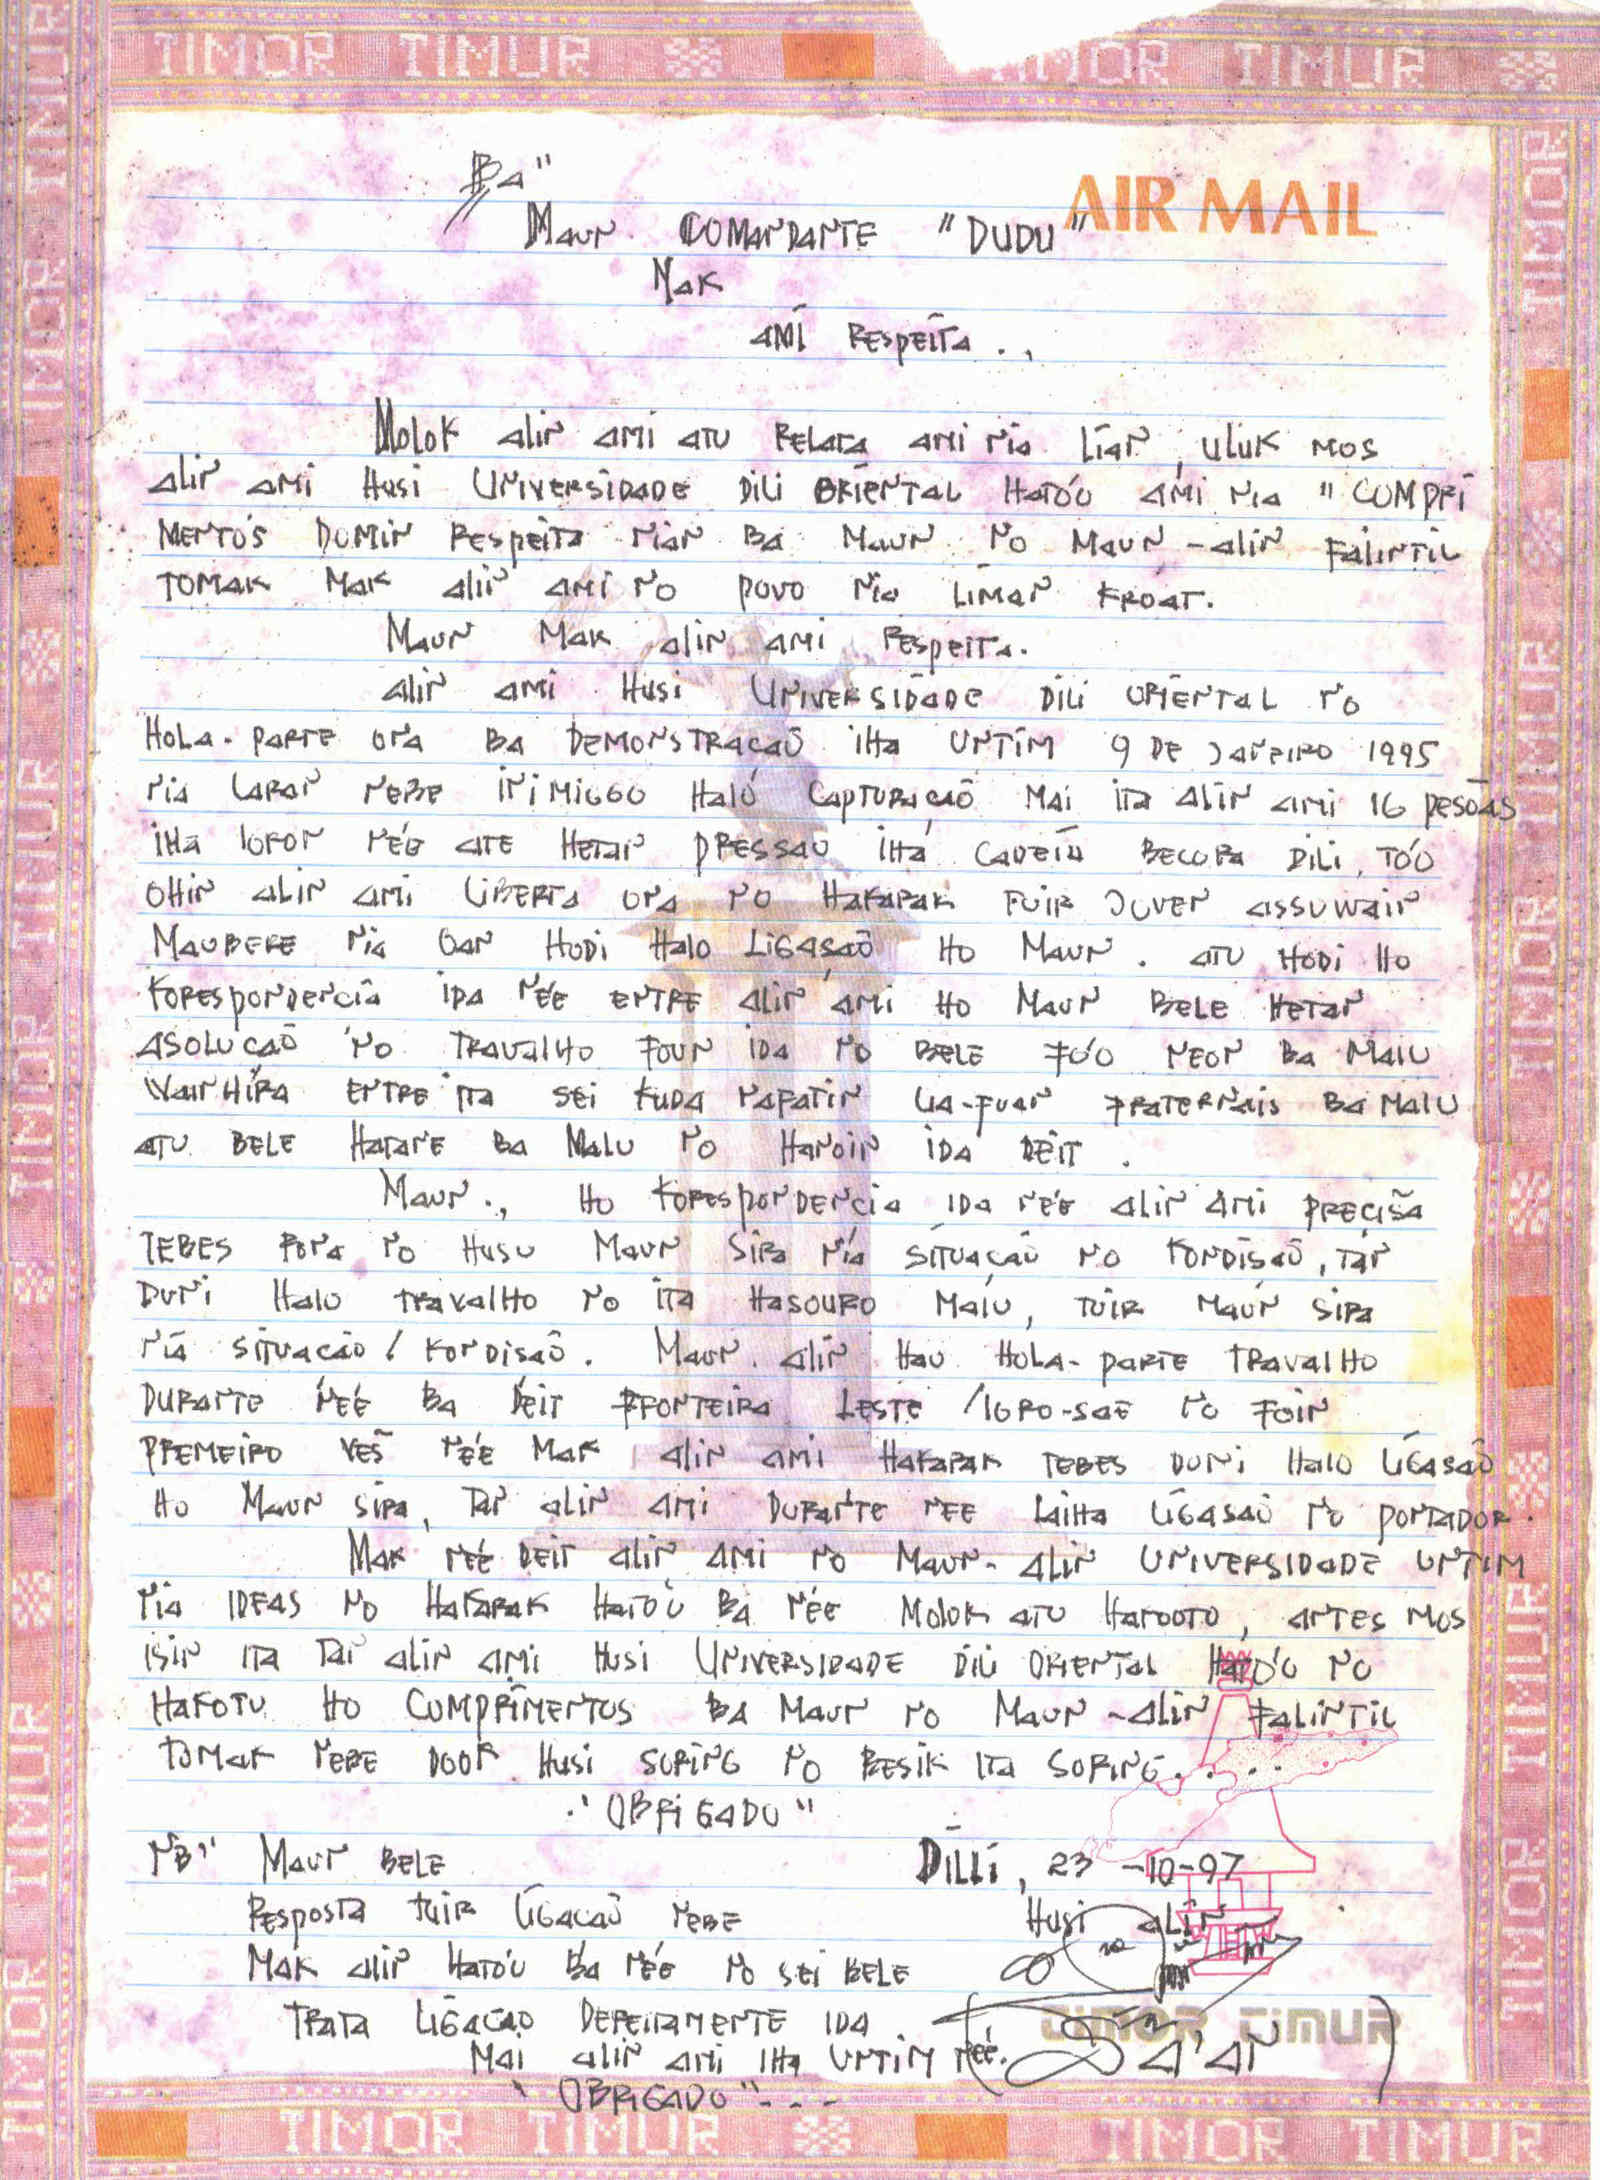 TIMOR TIMUR TIMOR TIMUR
AIR MAIL
Ba"
Maun COMANDANTE "DUDU"
Mak
AMI RESPEITA . ,
Molok alin ami atu relata ami nia lian, uluk mos
alin ami husi UNIVERSIDADE DILI ORIENTAL HATO'O AMI NIA "COMPRI
MENTOS DOMIN RESPEITA NIAN BA MAUN NO MAUN-ALIN FALINTIL
TOMAK MAK ALIN AMI NO POVO NIA LIMAN KROAT.
MAUN MAK ALIN AMI RESPEITA.
ALIN AMI HUSI UNIVERSIDADE DILI ORIENTAL NO
HOLA-PARTE ONA BA DEMONSTRACAÕ IHA UNTIM 9 DE JANEIRO 1995
NIA LARAN NEBE INIMIGGO HALO CAPTURAÇAÕ MAI ITA ALIN AMI 16 PESOAS
IHA LORON NE'E ATE HETAN PRESSAO IHA CADEIA BECORA DILI, TO'O
OHIN ALIN AMI LIBERTA ONA NO HAKARAK TUIR JUVEN ASSUWAIN
MAUBERE NIA OAN HODI HALO LIGASAÕ HO MAUN. ATU HODI HO
KORESPONDENCIA IDA NE'E ENTRE ALIN AMI HO MAUN BELE HETAN
ASOLUCAÕ NO TRAVALHO FOUN IDA NO BELE FO'O NEON BA MALU
WAINHIRA ENTRE ITA SEI KUDA NAFATIN LIA-FUAN FRATERNAIS BA MALU
ATU BELE HATANE BA MALU NO HANOIN IDA DEIT.
MAUN., HO KORESPONDENCIA IDA NE'E ALIN AMI PRECISA
TEBES RONA NO HUSU MAUN SIRA NIA SITUAÇAÕ NO KONDISAÕ, TAN
DUNI HALO TRAVALHO NO ITA HASOURO MALU, TUIR MAUN SIRA
NIA SITUACAO / KONDISAÕ. MAUN. ALIN HAU HOLA-PARTE TRAVALHO
DURANTE NE'E BA DEIT FRONTEIRA LESTE /LORO-SAE NO FOIN
PREMEIRO VES NE'E MAK ALIN AMI HAKARAK TEBES DUNI HALO LIGASAÕ
HO MAUN SIRA, TAN ALIN AMI DURANTE NEE LAIHA LIGASAO NO PORTADOR.
MAK NE'E DEIT ALIN AMI NO MAUN-ALIN UNIVERSIDADE UNTIM
NIA IDEAS NO HAKARAK HATO'O BA NE'E MOLOK ATU HAKOTO, ANTES MOS
ISIN ITA TAN ALIN AMI HUSI UNIVERSIDADE DILI ORIENTAL HATO'O NO
HAKOTU HO COMPRIMENTOS BA MAUN NO MAUN-ALIN FALINTIL
TOMAK NEBE DOOK HUSI SORING NO BESIK ITA SORING. . . .
"OBRIGADO"
NB" MAUN BELE
DILLI, 23-10-97
RESPOSTA TUIR LIGACAÕ NEBE
HUSI ALIN
MAK ALIN HATO'O BA NE'E NO SEI BELE
TRATA LIGACAO DEREITAMENTE IDA
TIMOR TIMUR
MAI ALIN AMI IHA UNTIM NE'E.
"OBRIGADO"---
TIMOR TIMUR TIMOR TIMUR